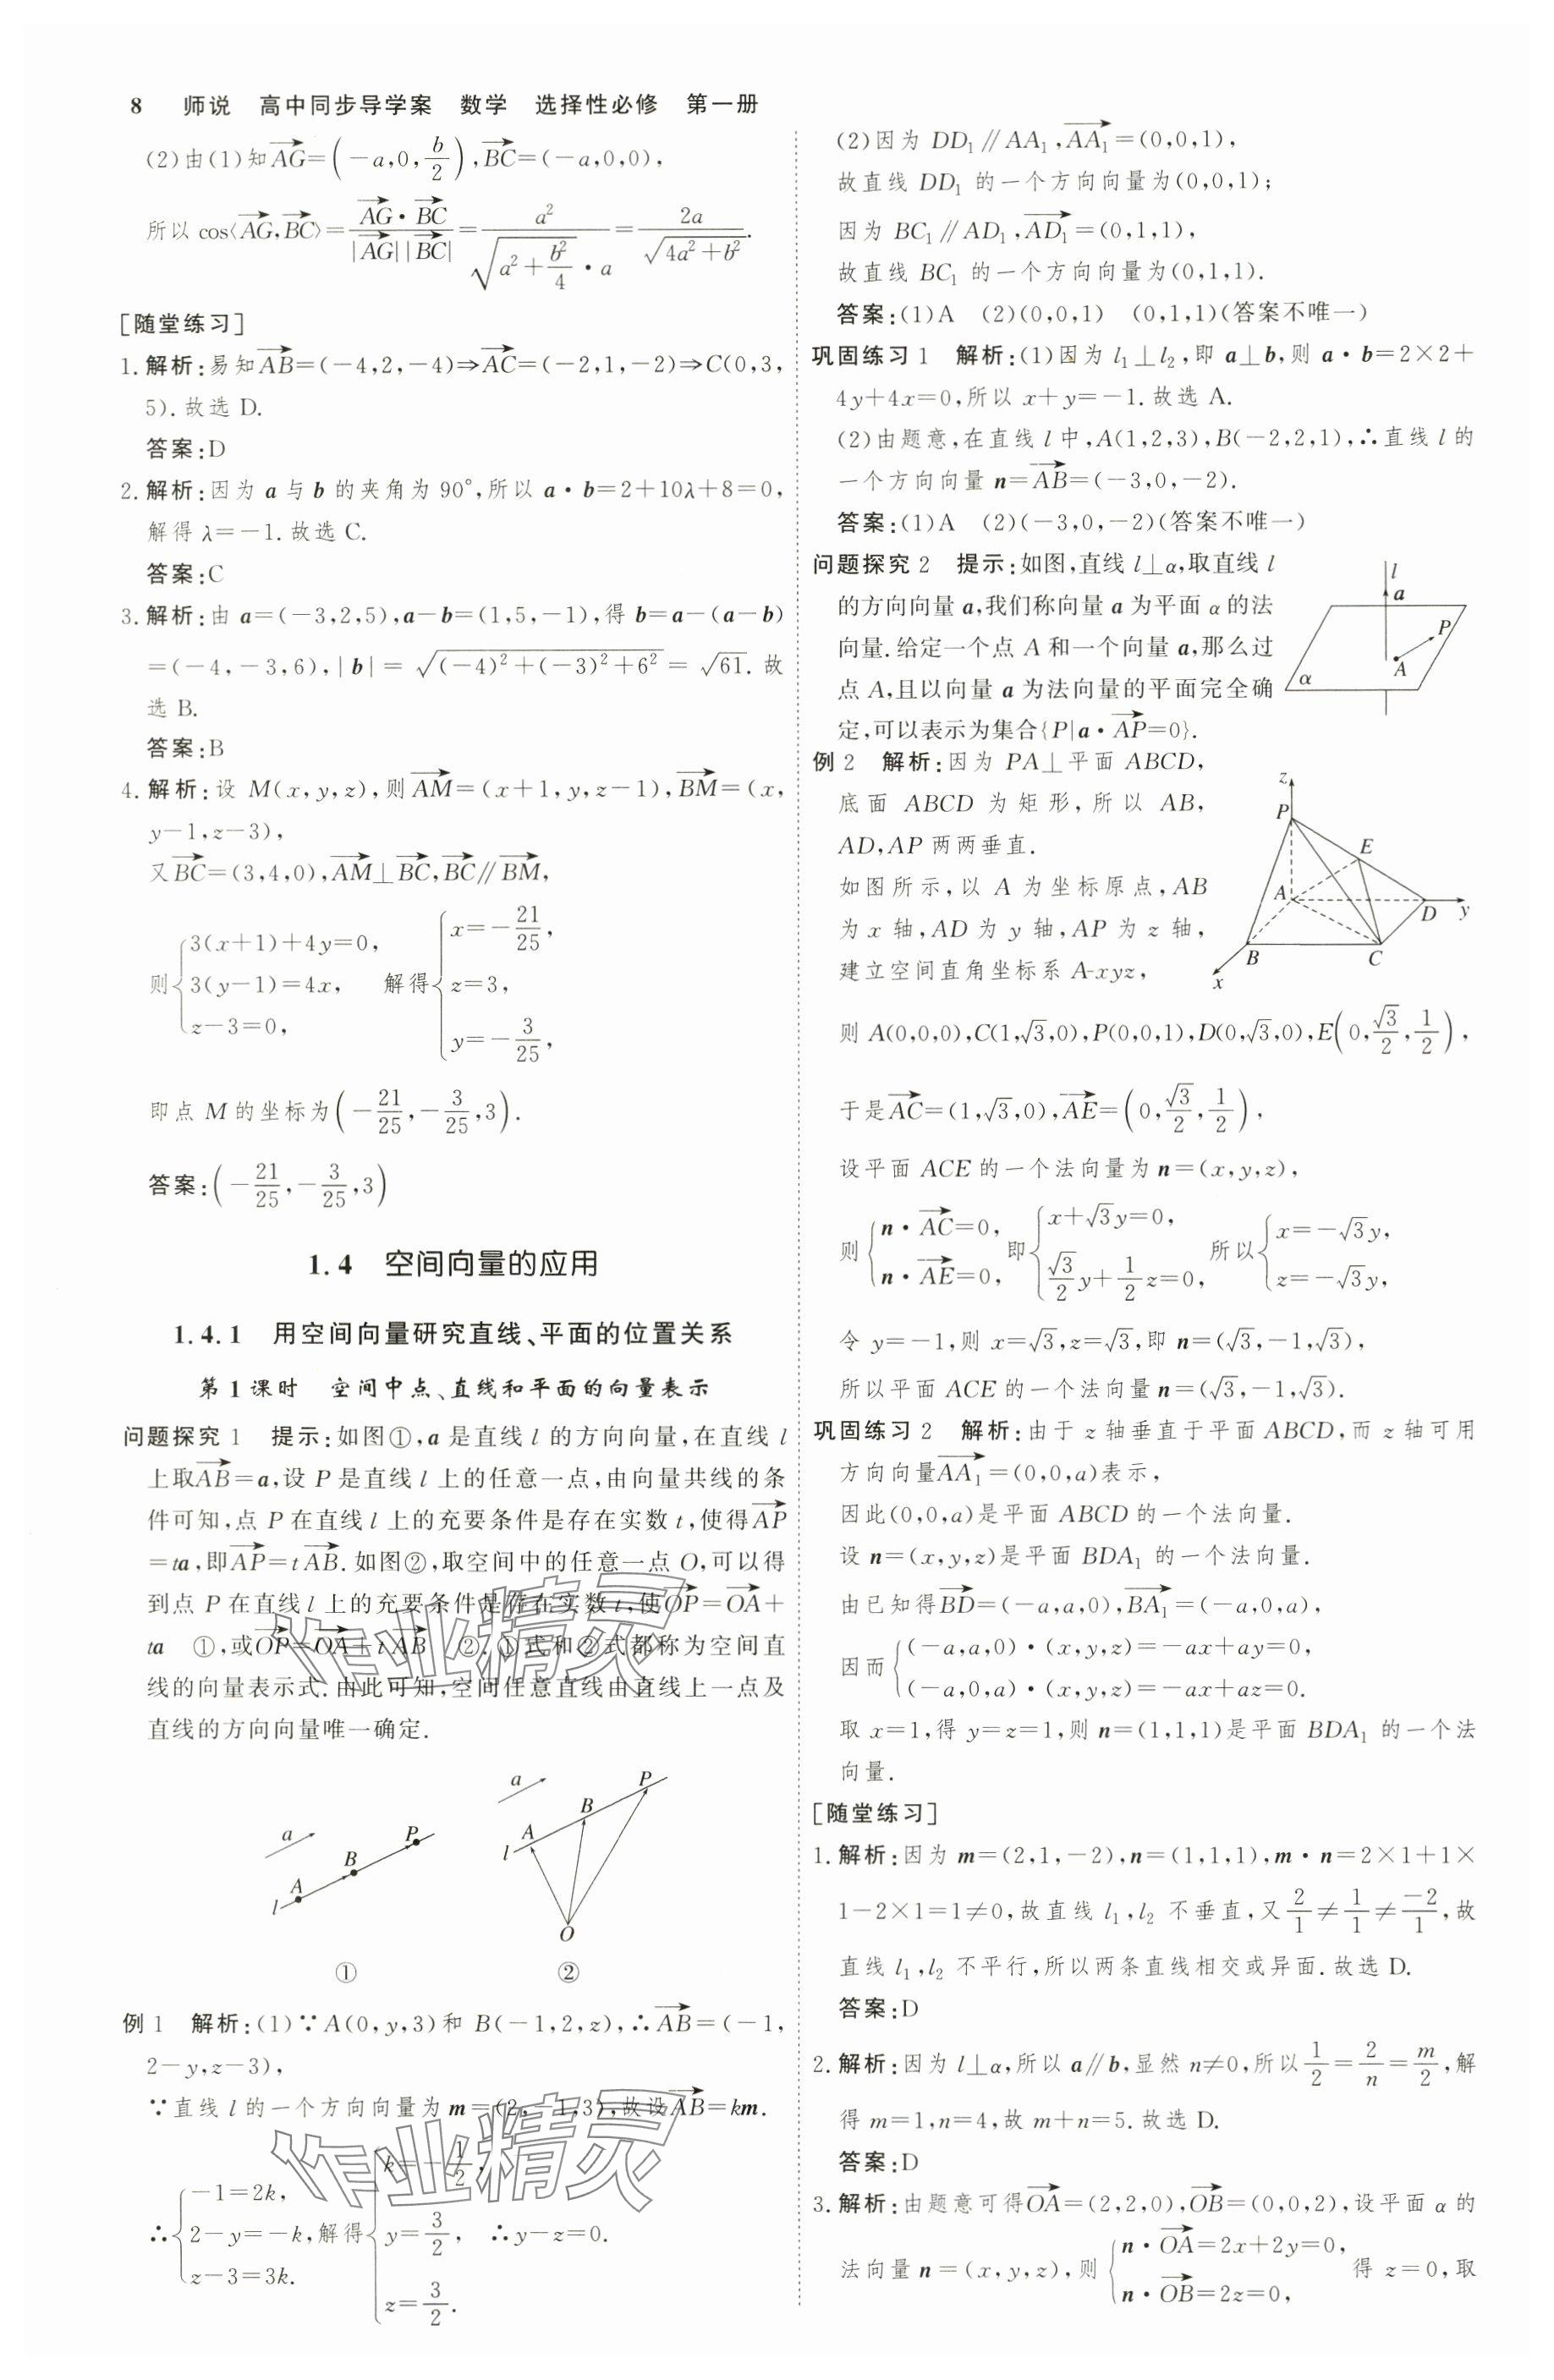 8 师说 高中同步导学案 数学 选择性必修 第一册
(2)由(1)知$\overrightarrow{AG}=\left(-a,0,\frac{b}{2}\right)$,$\overrightarrow{BC}=(-a,0,0)$,
所以 $\cos\langle\overrightarrow{AG},\overrightarrow{BC}\rangle=\frac{\overrightarrow{AG}\cdot\overrightarrow{BC}}{|\overrightarrow{AG}||\overrightarrow{BC}|}=\frac{a^2}{\sqrt{a^2+\frac{b^2}{4}}\cdot a}=\frac{2a}{\sqrt{4a^2+b^2}}$.
[随堂练习]
1.解析:易知$\overrightarrow{AB}$=(-4,2,-4)⇒$\overrightarrow{AC}$=(-2,1,-2)⇒C(0,3,
5).故选 D.
答案:D
2.解析:因为 a 与 b 的夹角为 90°,所以 a·b=2+10λ+8=0,
解得 λ=-1.故选 C.
答案:C
3.解析:由 a=(-3,2,5),a-b=(1,5,-1),得 b=a-(a-b)
=(-4,-3,6),|b|=$\sqrt{(-4)^2+(-3)^2+6^2}=\sqrt{61}$.故
选 B.
答案:B
4.解析:设 M(x,y,z),则$\overrightarrow{AM}$=(x+1,y,z-1),$\overrightarrow{BM}$=(x,
y-1,z-3),
又$\overrightarrow{BC}$=(3,4,0),$\overrightarrow{AM}$⊥$\overrightarrow{BC}$,$\overrightarrow{BC}$∥$\overrightarrow{BM}$,
则$\begin{cases}3(x+1)+4y=0,\\3(y-1)=4x,\\z-3=0,\end{cases}$ 解得$\begin{cases}x=-\frac{21}{25},\\z=3,\\y=-\frac{3}{25},\end{cases}$
即点 M 的坐标为$\left(-\frac{21}{25},-\frac{3}{25},3\right)$.
答案:$\left(-\frac{21}{25},-\frac{3}{25},3\right)$
1.4 空间向量的应用
1.4.1 用空间向量研究直线、平面的位置关系
第1课时 空间中点、直线和平面的向量表示
问题探究 1 提示:如图①,a 是直线 l 的方向向量,在直线 l
上取$\overrightarrow{AB}$=a,设 P 是直线 l 上的任意一点,由向量共线的条
件可知,点 P 在直线 l 上的充要条件是存在实数 t,使得$\overrightarrow{AP}$
=ta,即$\overrightarrow{AP}$=t$\overrightarrow{AB}$.如图②,取空间中的任意一点 O,可以得
到点 P 在直线 l 上的充要条件是存在实数 t,使$\overrightarrow{OP}$=$\overrightarrow{OA}$+
ta ①,或$\overrightarrow{OP}$=$\overrightarrow{OA}$+t$\overrightarrow{AB}$ ②.①式和②式都称为空间直
线的向量表示式.由此可知,空间任意直线由直线上一点及
直线的方向向量唯一确定.
a A B P l
①
a A B P l O
②
例 1 解析:(1)∵A(0,y,3)和 B(-1,2,z),∴$\overrightarrow{AB}$=(-1,
2-y,z-3),
∵直线 l 的一个方向向量为 m=(2,-1,3),故设$\overrightarrow{AB}$=km.
∴$\begin{cases}-1=2k,\\2-y=-k,\\z-3=3k.\end{cases}$解得$\begin{cases}k=-\frac{1}{2},\\y=\frac{3}{2},\\z=\frac{3}{2}.\end{cases}$ ∴y-z=0.
(2)因为 DD₁∥AA₁,$\overrightarrow{AA_1}$=(0,0,1),
故直线 DD₁ 的一个方向向量为(0,0,1);
因为 BC₁∥AD₁,$\overrightarrow{AD_1}$=(0,1,1),
故直线 BC₁ 的一个方向向量为(0,1,1).
答案:(1)A (2)(0,0,1) (0,1,1)(答案不唯一)
巩固练习 1 解析:(1)因为 l₁⊥l₂,即 a⊥b,则 a·b=2×2+
4y+4x=0,所以 x+y=-1.故选 A.
(2)由题意,在直线 l 中,A(1,2,3),B(-2,2,1),∴直线 l 的
一个方向向量 n=$\overrightarrow{AB}$=(-3,0,-2).
答案:(1)A (2)(-3,0,-2)(答案不唯一)
问题探究 2 提示:如图,直线 l⊥α,取直线 l
的方向向量 a,我们称向量 a 为平面 α 的法
向量.给定一个点 A 和一个向量 a,那么过
点 A,且以向量 a 为法向量的平面完全确
定,可以表示为集合{P|a·$\overrightarrow{AP}$=0}.
l a P A α
例 2 解析:因为 PA⊥平面 ABCD,
底面 ABCD 为矩形,所以 AB,
AD,AP 两两垂直.
如图所示,以 A 为坐标原点,AB
为 x 轴,AD 为 y 轴,AP 为 z 轴,
建立空间直角坐标系 A-xyz,
z P E A D y B C x
则 A(0,0,0),C(1,$\sqrt{3}$,0),P(0,0,1),D(0,$\sqrt{3}$,0),E$\left(0,\frac{\sqrt{3}}{2},\frac{1}{2}\right)$,
于是$\overrightarrow{AC}$=(1,$\sqrt{3}$,0),$\overrightarrow{AE}$=$\left(0,\frac{\sqrt{3}}{2},\frac{1}{2}\right)$,
设平面 ACE 的一个法向量为 n=(x,y,z),
则$\begin{cases}n\cdot\overrightarrow{AC}=0,\\n\cdot\overrightarrow{AE}=0,\end{cases}$即$\begin{cases}x+\sqrt{3}y=0,\\\frac{\sqrt{3}}{2}y+\frac{1}{2}z=0,\end{cases}$所以$\begin{cases}x=-\sqrt{3}y,\\z=-\sqrt{3}y,\end{cases}$
令 y=-1,则 x=$\sqrt{3}$,z=$\sqrt{3}$,即 n=($\sqrt{3}$,-1,$\sqrt{3}$),
所以平面 ACE 的一个法向量 n=($\sqrt{3}$,-1,$\sqrt{3}$).
巩固练习 2 解析:由于 z 轴垂直于平面 ABCD,而 z 轴可用
方向向量$\overrightarrow{AA_1}$=(0,0,a)表示,
因此(0,0,a)是平面 ABCD 的一个法向量.
设 n=(x,y,z)是平面 BDA₁ 的一个法向量.
由已知得$\overrightarrow{BD}$=(-a,a,0),$\overrightarrow{BA_1}$=(-a,0,a),
因而$\begin{cases}(-a,a,0)\cdot(x,y,z)=-ax+ay=0,\\(-a,0,a)\cdot(x,y,z)=-ax+az=0.\end{cases}$
取 x=1,得 y=z=1,则 n=(1,1,1)是平面 BDA₁ 的一个法
向量.
[随堂练习]
1.解析:因为 m=(2,1,-2),n=(1,1,1),m·n=2×1+1×
1-2×1=1≠0,故直线 l₁,l₂ 不垂直,又$\frac{2}{1}\neq\frac{1}{1}\neq\frac{-2}{1}$,故
直线 l₁,l₂ 不平行,所以两条直线相交或异面.故选 D.
答案:D
2.解析:因为 l⊥α,所以 a∥b,显然 n≠0,所以$\frac{1}{2}=\frac{2}{n}=\frac{m}{2}$,解
得 m=1,n=4,故 m+n=5.故选 D.
答案:D
3.解析:由题意可得$\overrightarrow{OA}$=(2,2,0),$\overrightarrow{OB}$=(0,0,2),设平面 α 的
法向量 n=(x,y,z),则$\begin{cases}n\cdot\overrightarrow{OA}=2x+2y=0,\\n\cdot\overrightarrow{OB}=2z=0,\end{cases}$ 得 z=0,取
作业精灵
作业精灵